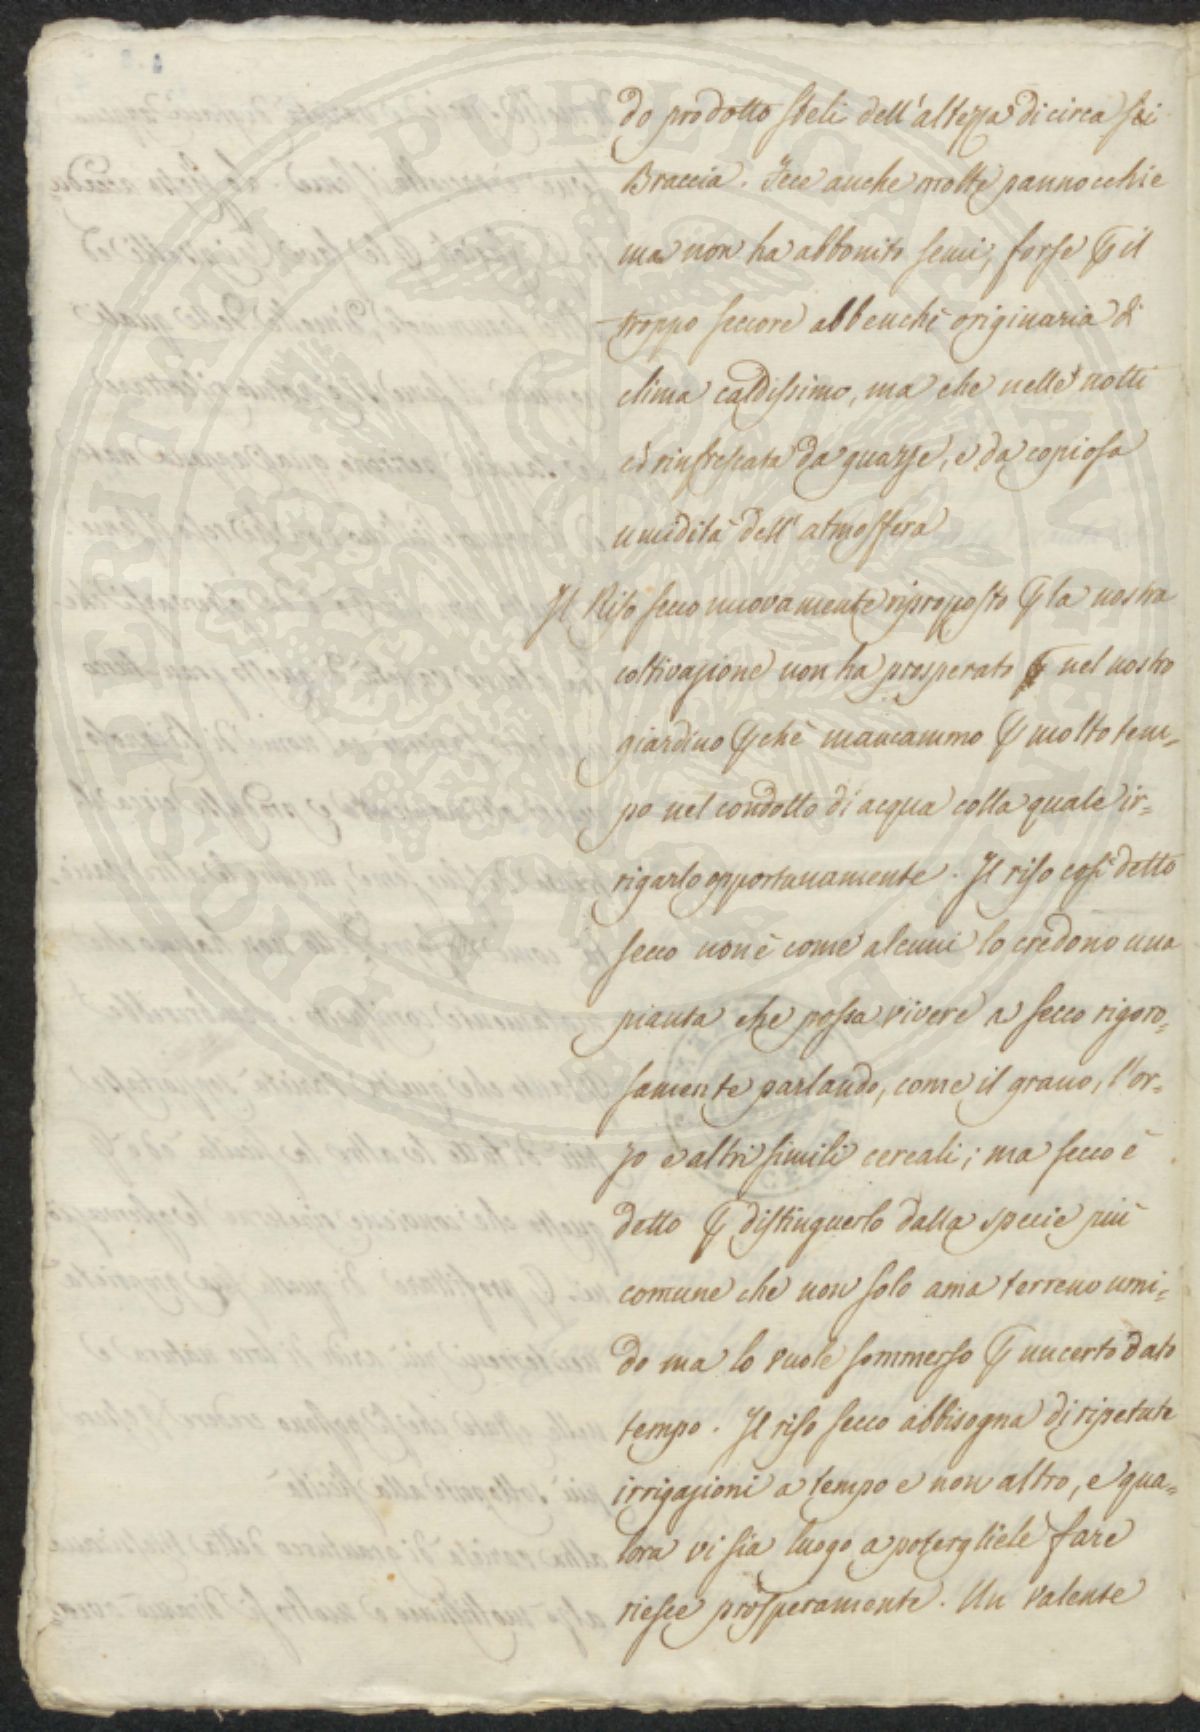 do prodotto steli dell'altezza di circa sei
Braccia. Fece anche molte pannocchie
ma non ha abbonito semi, forse ꝑ il
troppo seccore abbenchè originaria di
clima caldissimo, ma che nelle notti
è rinfrescata da guazze, e da copiosa
umidità dell'atmosfera
Il Riso secco nuovamente riproposto ꝑ la nostra
coltivazione non ha prosperato nel nostro
giardino ꝑchè mancammo ꝑ molto tem=
po nel condotto di acqua colla quale ir=
rigarlo opportunamente. Il riso così detto
secco non è come alcuni lo credono una
pianta che possa vivere a secco rigoro=
samente parlando, come il grano, l'or=
zo e altri simili cereali; ma secco è
detto ꝑ distinguerlo dalla specie più
comune che non solo ama terreno umi=
do ma lo vuole sommerso ꝑ un certo dato
tempo. Il riso secco abbisogna di ripetute
irrigazioni a tempo e non altro, e qua=
lora vi sia luogo a potergliele fare
riesce prosperamente. Un valente